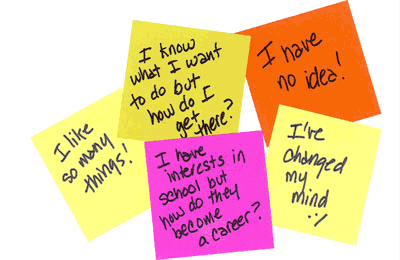 I know
what I want
to do but
how do I
get
there?
I have
no idea!
I like
so many
things!
I have
interests in
school but
how do they
become
a career?
I've
changed
my
mind
:/